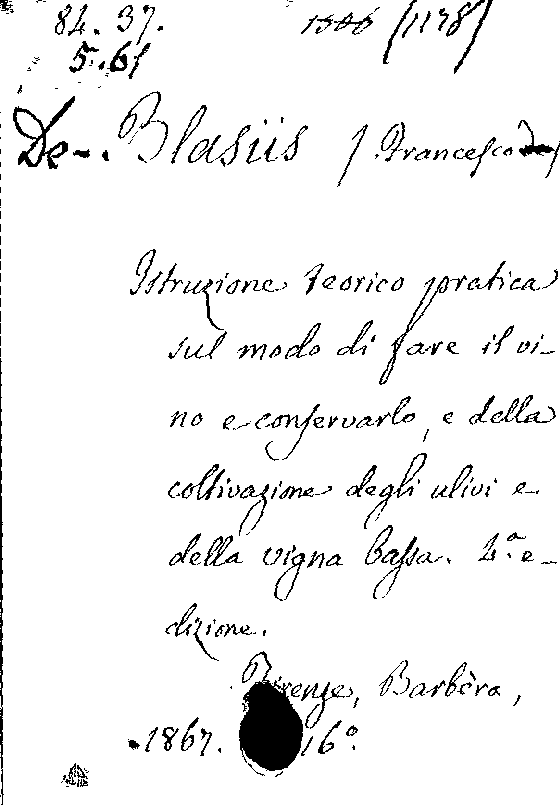 84. 37.
5. 61
1306 (1178)
De-. Blasiis / Francesco
Istruzione teorico pratica
sul modo di fare il vi-
no e conservarlo, e della
coltivazione degli ulivi e
della vigna bassa. 2.ª e-
dizione.
Firenze, Barbèra,
1867. 16º.